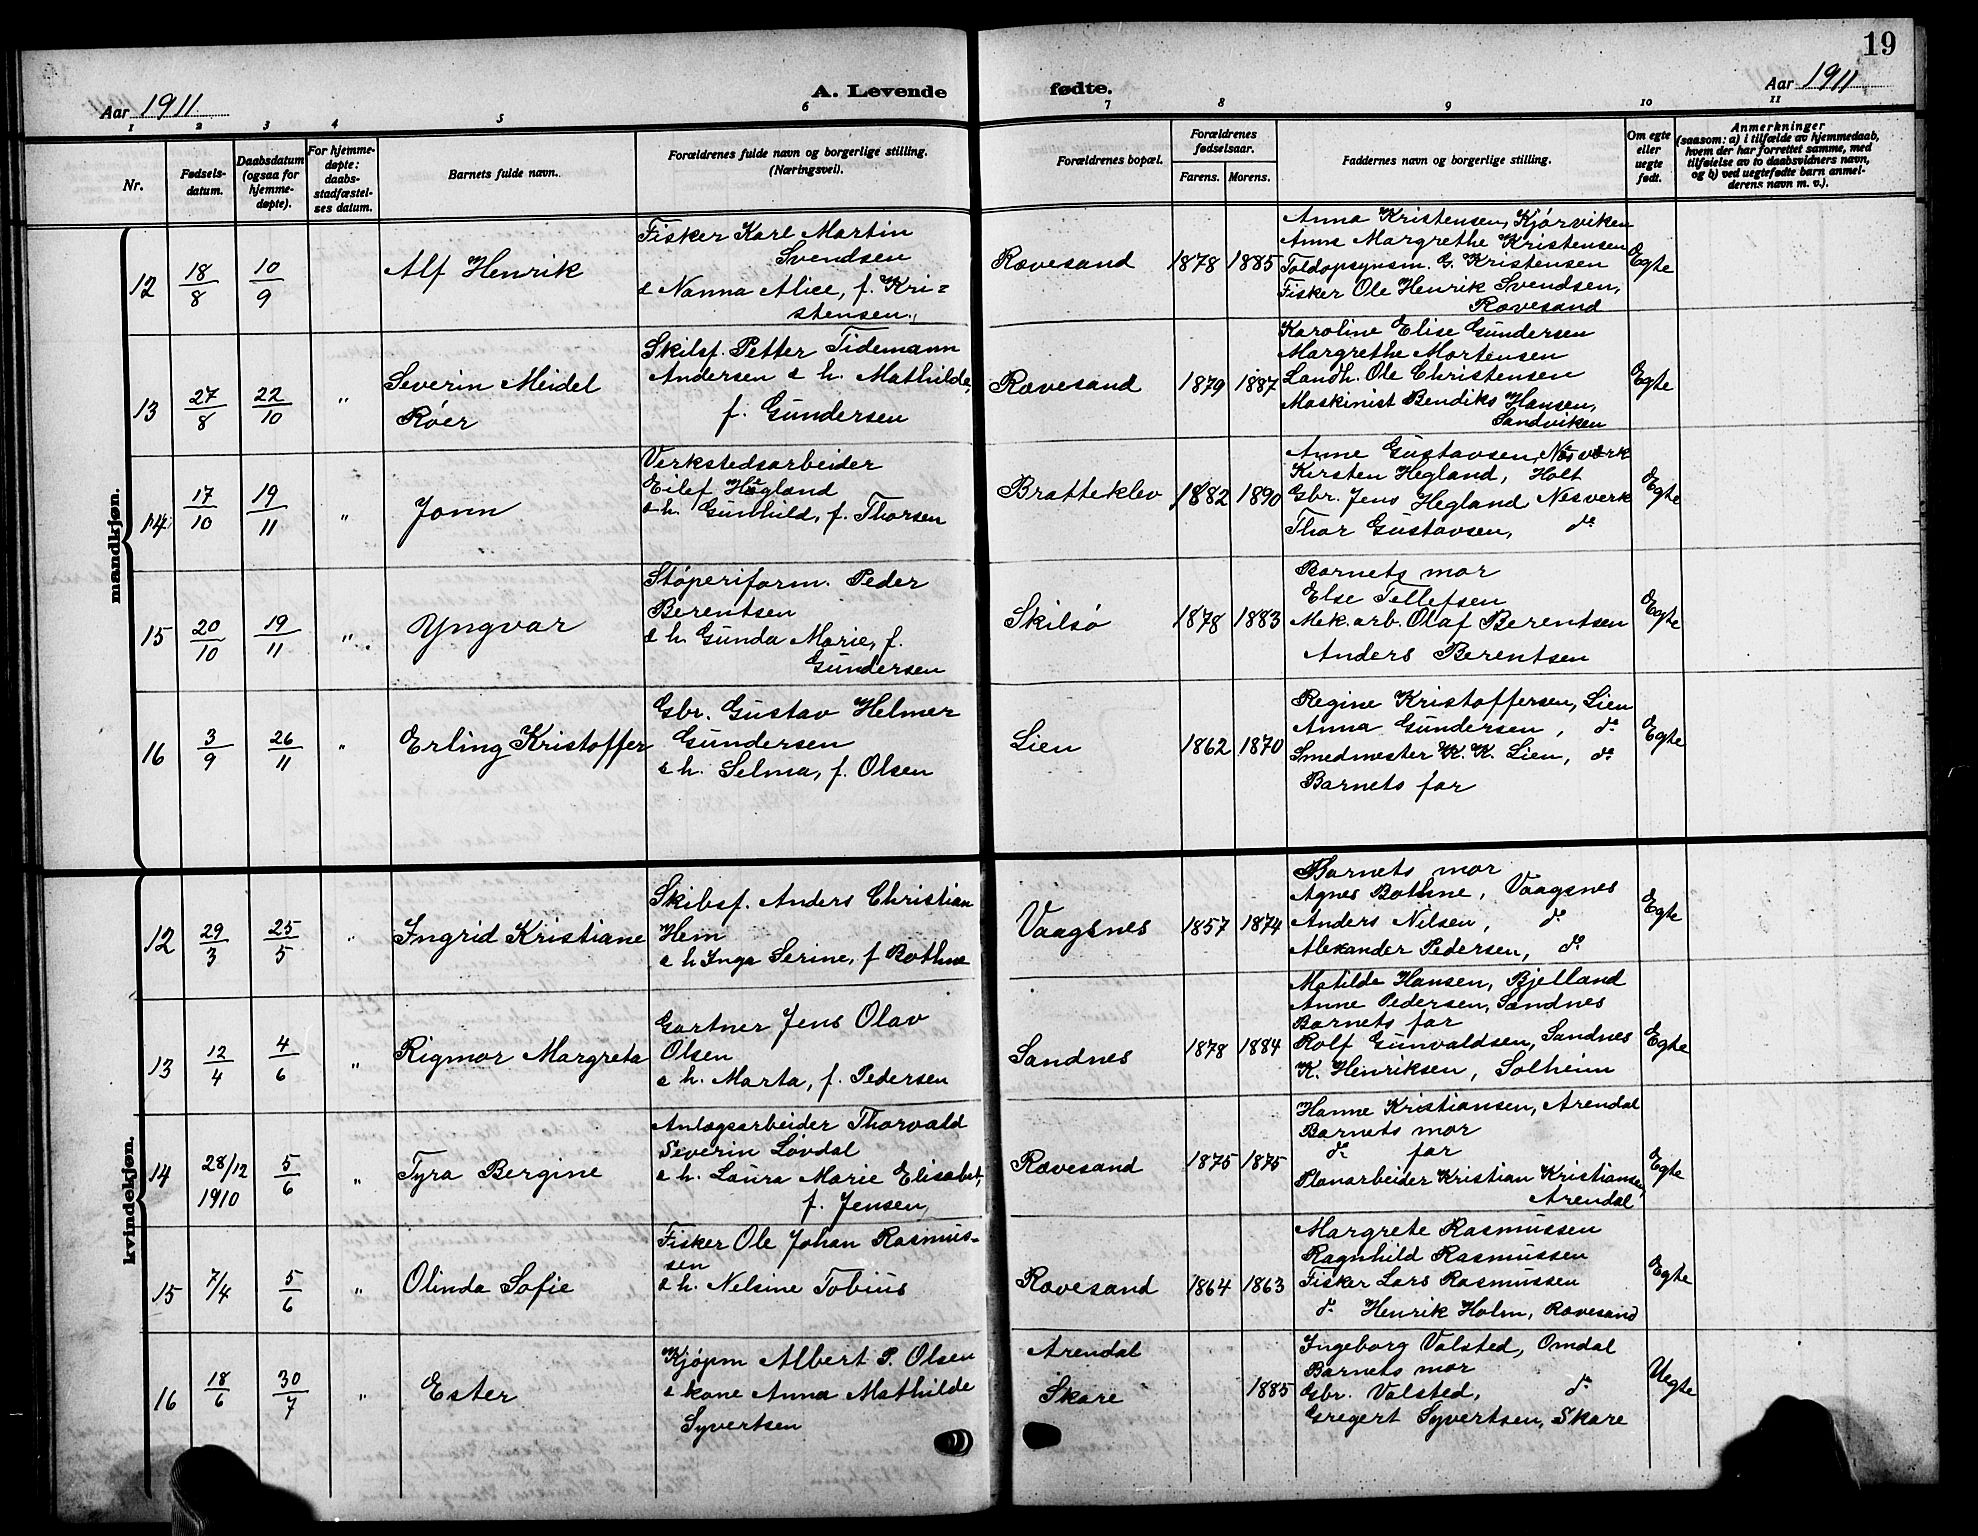 19
A. Levende fødte.
Aar 1911
Aar 1911
1 2 3 4 5 6 7 8 9 10 11
Nr.
Fødsels-
datum.
Daabsdatum
(ogsaa for
hjemme-
døpte).
For hjemme-
døpte:
daabs-
stadfæstel-
ses datum.
Barnets fulde navn.
Forældrenes fulde navn og borgerlige stilling.
(Næringsvei).
Forældrenes bopæl.
Forældrenes
fødselsaar.
Farens. Morens.
Faddernes navn og borgerlige stilling.
Om egte
eller
uegte
født.
Anmerkninger
(saasom: a) i tilfælde av hjemmedaab,
hvem der har forrettet samme, med
tilføielse av to daabsvidners navn,
og b) ved uegtefødte barn anmel-
derens navn m. v.).
mandkjøn.
12 18/8 10/9 Alf Henrik
Fisker Karl Martin
Svendsen
& Nanna Alice, f. Kri=
stensen.
Rævesand 1878 1885
Anna Kristensen, Kjørviken
Anne Margrethe Kristensen
Toldopsynsm. G. Kristensen
Fisker Ole Henrik Svendsen,
Rævesand
Egte
13 27/8 22/10 "
Severin Meidel
Röer
Skibsf. Petter Tidemann
Andersen & h. Mathilde,
f. Gundersen
Rævesand 1879 1887
Karoline Elise Gundersen
Margrethe Mortensen
Landh. Ole Christensen
Maskinist Bendiks Hansen,
Sandviken
Egte
14 17/10 19/11 " Jonn
Verkstedsarbeider
Eilef Hegland
& h. Gunhild, f. Thorsen
Bratteklev 1882 1890
Anne Gustavsen, Nesverk
Kirsten Hegland, Holt
Gbr. Jens Hegland Nesverk
Thor Gustavsen, do
Egte
15 20/10 19/11 " Yngvar
Støperiform. Peder
Berentsen
& h. Gunda Marie, f.
Gundersen
Skilsø 1878 1883
Barnets mor
Else Tellefsen
Mek. arb. Olaf Berentsen
Anders Berentsen
Egte
16 3/9 26/11 " Erling Kristoffer
Gbr. Gustav Helmer
Gundersen
& h. Selma, f. Olsen
Lien 1862 1870
Regine Kristoffersen, Lien
Anna Gundersen, do
Smedmester K. K. Lien, do
Barnets far
Egte
kvindekjøn.
12 29/3 25/5 " Ingrid Kristiane
Skibsf. Anders Christian
Hem
& h Inga Serine, f Bothne
Vaagsnes 1857 1874
Barnets mor
Agnes Bothne, Vaagsnes
Anders Nilsen, do
Alexander Pedersen, do
Egte
13 12/4 4/6 " Rigmor Margreta
Gartner Jens Olav
Olsen
& h. Marta, f. Pedersen
Sandnes 1878 1884
Matilde Hansen, Bjelland
Anne Pedersen, Sandnes
Barnets far
Rolf Gunvaldsen, Sandnes
K. Henriksen, Solheim
Egte
14 28/12 1910 5/6 " Tyra Bergine
Anlægsarbeider Thorvald
Severin Løvdal
& h. Laura Marie Elisabet,
f. Jensen
Rævesand 1875 1875
Hanne Kristiansen, Arendal
Barnets mor
do far
Planarbeider Kristian Kristiansen,
Arendal
Egte
15 7/4 5/6 " Olinda Sofie
Fisker Ole Johan Rasmus-
sen
& h. Nelsine Tobius
Rævesand 1864 1863
Margrete Rasmussen
Ragnhild Rasmussen
Fisker Lars Rasmussen
do Henrik Holm, Rævesand
Egte
16 18/6 30/7 " Ester
Kjøpm Albert P. Olsen
& kone Anna Mathilde
Syvertsen
Arendal
Skare 1885
Ingeborg Valsted, Omdal
Barnets mor
Gbr. Valsted, do
Gregert Syvertsen, Skare
Uegte